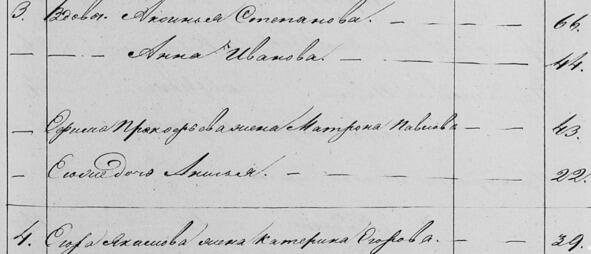 3. Вдова Аксинья Степанова. — — — 66.
— — Анна Иванова. — — — 44.
— Ефима Прокофьева жена Матрона Павлова — — 43.
— Ею же дочь Анисья. — — — 22.
4. Егора Якимова жена Катерина Егорова. — — 39.